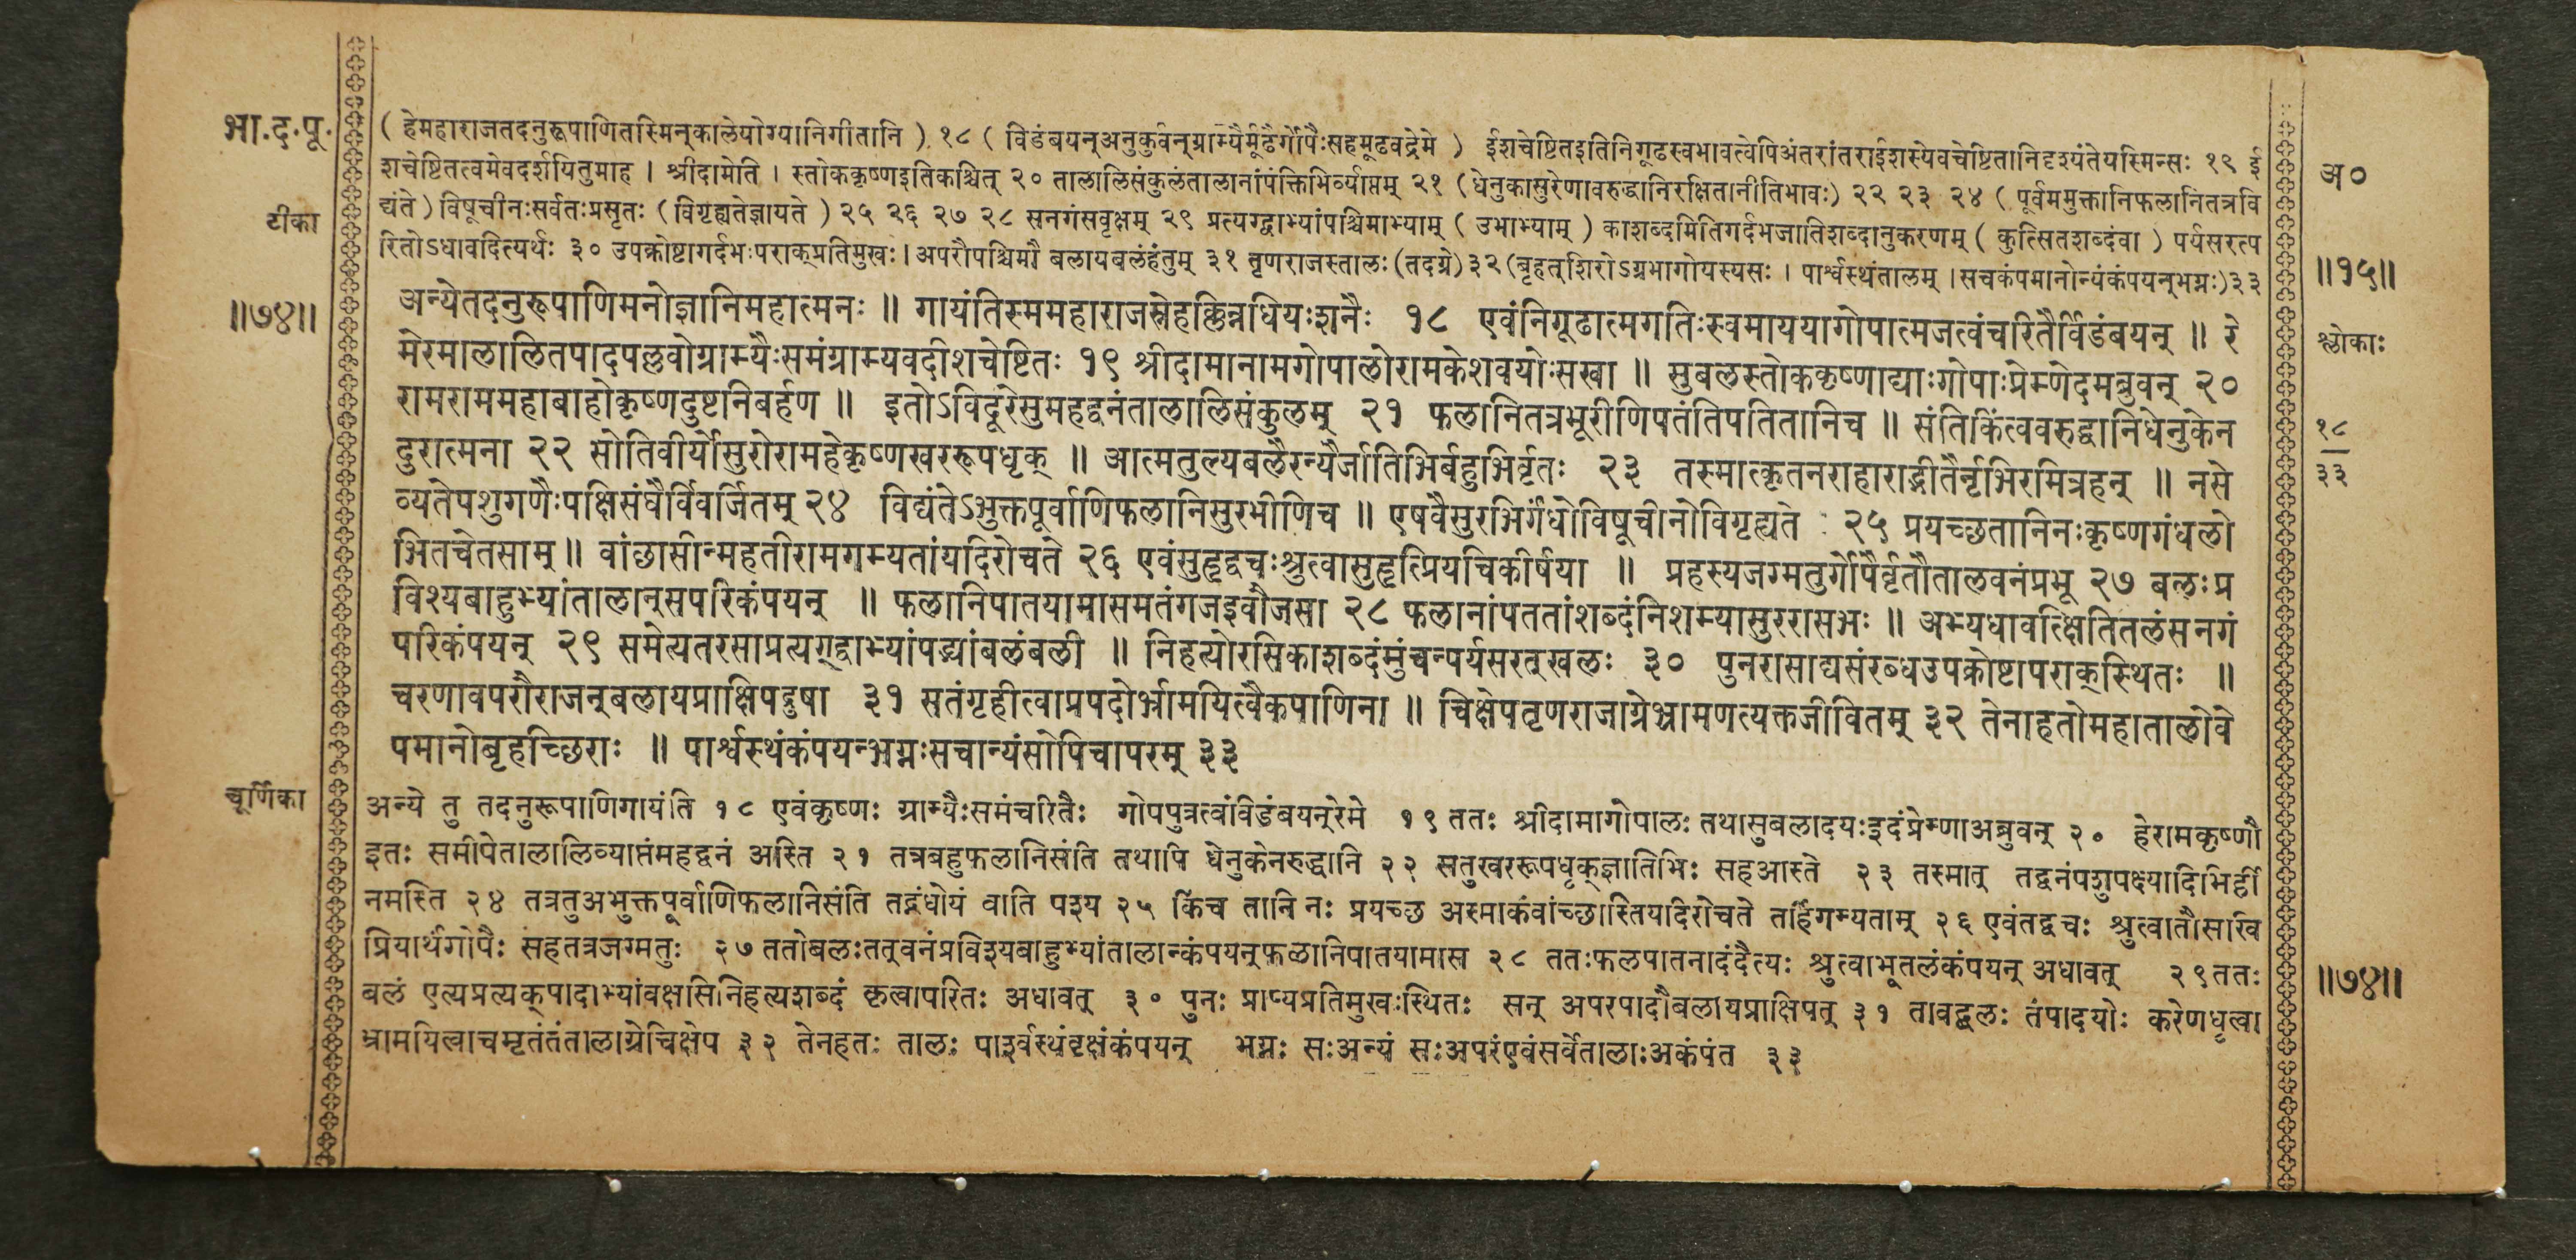 भा.द.पू.
टीका
॥७४॥
(हेमहाराजतदनुरूपाणितस्मिन्कालेयोग्यानिगीतानि) १८ (विडंबयन्अनुकुर्वन्ग्राम्यैर्मूढैर्गोपैःसहमूढवद्रेमे) ईशचेष्टितइतिनिगूढस्वभावत्वेपिअंतरांतराईशस्येवचेष्टितानिदृश्यंतेयस्मिन्सः १९ ई
शचेष्टितत्वमेवदर्शयितुमाह । श्रीदामेति । स्तोककृष्णइतिकश्चित् २० तालालिसंकुलंतालानांपंक्तिभिर्व्याप्तम् २१ (धेनुकासुरेणावरुद्धानिरक्षितानीतिभावः) २२ २३ २४ (पूर्वममुक्तानिफलानितत्रवि
द्यंते) विषूचीनःसर्वतःप्रसृतः (विगृह्यतेज्ञायते) २५ २६ २७ २८ सनगंसवृक्षम् २९ प्रत्यग्द्वाभ्यांपश्चिमाभ्याम् (उभाभ्याम्) काशब्दमितिगर्दभजातिशब्दानुकरणम् (कुत्सितशब्दंवा) पर्यसरत्प
रितोऽधावदित्यर्थः ३० उपक्रोष्टागर्दभःपराक्प्रतिमुखः। अपरौपश्चिमौ बलायबलंहंतुम् ३१ तृणराजस्तालः (तदग्रे) ३२ (बृहत्शिरोऽग्रभागोयस्यसः । पार्श्वस्थंतालम् । सचकंपमानोन्यंकंपयन्भग्नः)३३
अन्येतदनुरूपाणिमनोज्ञानिमहात्मनः ॥ गायंतिस्ममहाराजस्नेहक्लिन्नधियःशनैः १८ एवंनिगूढात्मगतिःस्वमाययागोपात्मजत्वंचरितैर्विडंबयन् ॥ रे
मेरमालालितपादपल्लवोग्राम्यैःसमंग्राम्यवदीशचेष्टितः १९ श्रीदामानामगोपालोरामकेशवयोःसखा ॥ सुबलस्तोककृष्णाद्याःगोपाःप्रेम्णेदमब्रुवन् २०
रामराममहाबाहोकृष्णदुष्टनिबर्हण ॥ इतोऽविदूरेसुमहद्वनंतालालिसंकुलम् २१ फलानितत्रभूरीणिपतंतिपतितानिच ॥ संतिकिंत्ववरुद्धानिधेनुकेन
दुरात्मना २२ सोतिवीर्योसुरोरामहेकृष्णखररूपधृक् ॥ आत्मतुल्यबलैरन्यैर्ज्ञातिभिर्बहुभिर्वृतः २३ तस्मात्कृतनराहाराद्भीतैर्नृभिरमित्रहन् ॥ नसे
व्यतेपशुगणैःपक्षिसंघैर्विवर्जितम् २४ विद्यंतेऽभुक्तपूर्वाणिफलानिसुरभीणिच ॥ एषवैसुरभिर्गंधोविषूचीनोविगृह्यते २५ प्रयच्छतानिनःकृष्णगंधलो
भितचेतसाम् ॥ वांछासीन्महतीरामगम्यतांयदिरोचते २६ एवंसुहृद्वचःश्रुत्वासुहृत्प्रियचिकीर्षया ॥ प्रहस्यजग्मतुर्गोपैर्वृतौतालवनंप्रभू २७ बलःप्र
विश्यबाहुभ्यांतालान्सपरिकंपयन् ॥ फलानिपातयामासमतंगजइवौजसा २८ फलानांपततांशब्दंनिशम्यासुररासभः ॥ अभ्यधावत्क्षितितलंसनगं
परिकंपयन् २९ समेत्यतरसाप्रत्यग्द्वाभ्यांपद्भ्यांबलंबली ॥ निहत्योरसिकाशब्दंमुंचन्पर्यसरत्खलः ३० पुनरासाद्यसंरब्धउपक्रोष्टापराक्स्थितः ॥
चरणावपरौराजन्बलायप्राक्षिपद्रुषा ३१ सतंगृहीत्वाप्रपदोर्भ्रामयित्वैकपाणिना ॥ चिक्षेपतृणराजाग्रेभ्रामणत्यक्तजीवितम् ३२ तेनाहतोमहातालोवे
पमानोबृहच्छिराः ॥ पार्श्वस्थंकंपयन्भग्नःसचान्यंसोपिचापरम् ३३
चूर्णिका
अन्ये तु तदनुरूपाणिगायंति १८ एवंकृष्णः ग्राम्यैःसमंचरितैः गोपपुत्रत्वंविडंबयन्रेमे १९ ततः श्रीदामागोपालः तथासुबलादयःइदंप्रेम्णाअब्रुवन् २० हेरामकृष्णौ
इतः समीपेतालालिव्याप्तंमहद्वनं अस्ति २१ तत्रबहुफलानिसंति तथापि धेनुकेनरुद्धानि २२ सतुखररूपधृक्ज्ञातिभिः सहआस्ते २३ तस्मात् तद्वनंपशुपक्ष्यादिभिर्ही
नमस्ति २४ तत्रतुअभुक्तपूर्वाणिफलानिसंति तद्गंधोयं वाति पश्य २५ किंच तानि नः प्रयच्छ अस्माकंवांच्छास्तियदिरोचते तर्हिगम्यताम् २६ एवंतद्वचः श्रुत्वातौसखि
प्रियार्थंगोपैः सहतत्रजग्मतुः २७ ततोबलःतत्वनंप्रविश्यबाहुभ्यांतालान्कंपयन्फलानिपातयामास २८ ततःफलपातनादंदैत्यः श्रुत्वाभूतलंकंपयन् अधावत् २९ ततः
बलं एत्यप्रत्यक्पादाभ्यांवक्षसिनिहत्यशब्दं कृत्वापरितः अधावत् ३० पुनः प्राप्यप्रतिमुखःस्थितः सन् अपरपादौबलायप्राक्षिपत् ३१ तावद्बलः तंपादयोः करेणधृत्वा
भ्रामयित्वाचमृतंतंतालाग्रेचिक्षेप ३२ तेनहतः तालः पार्श्वस्थंवृक्षंकंपयन् भग्नः सःअन्यं सःअपरंएवंसर्वेतालाःअकंपंत ३३
अ०
॥१५॥
श्लोकाः
१८
३३
॥७४॥